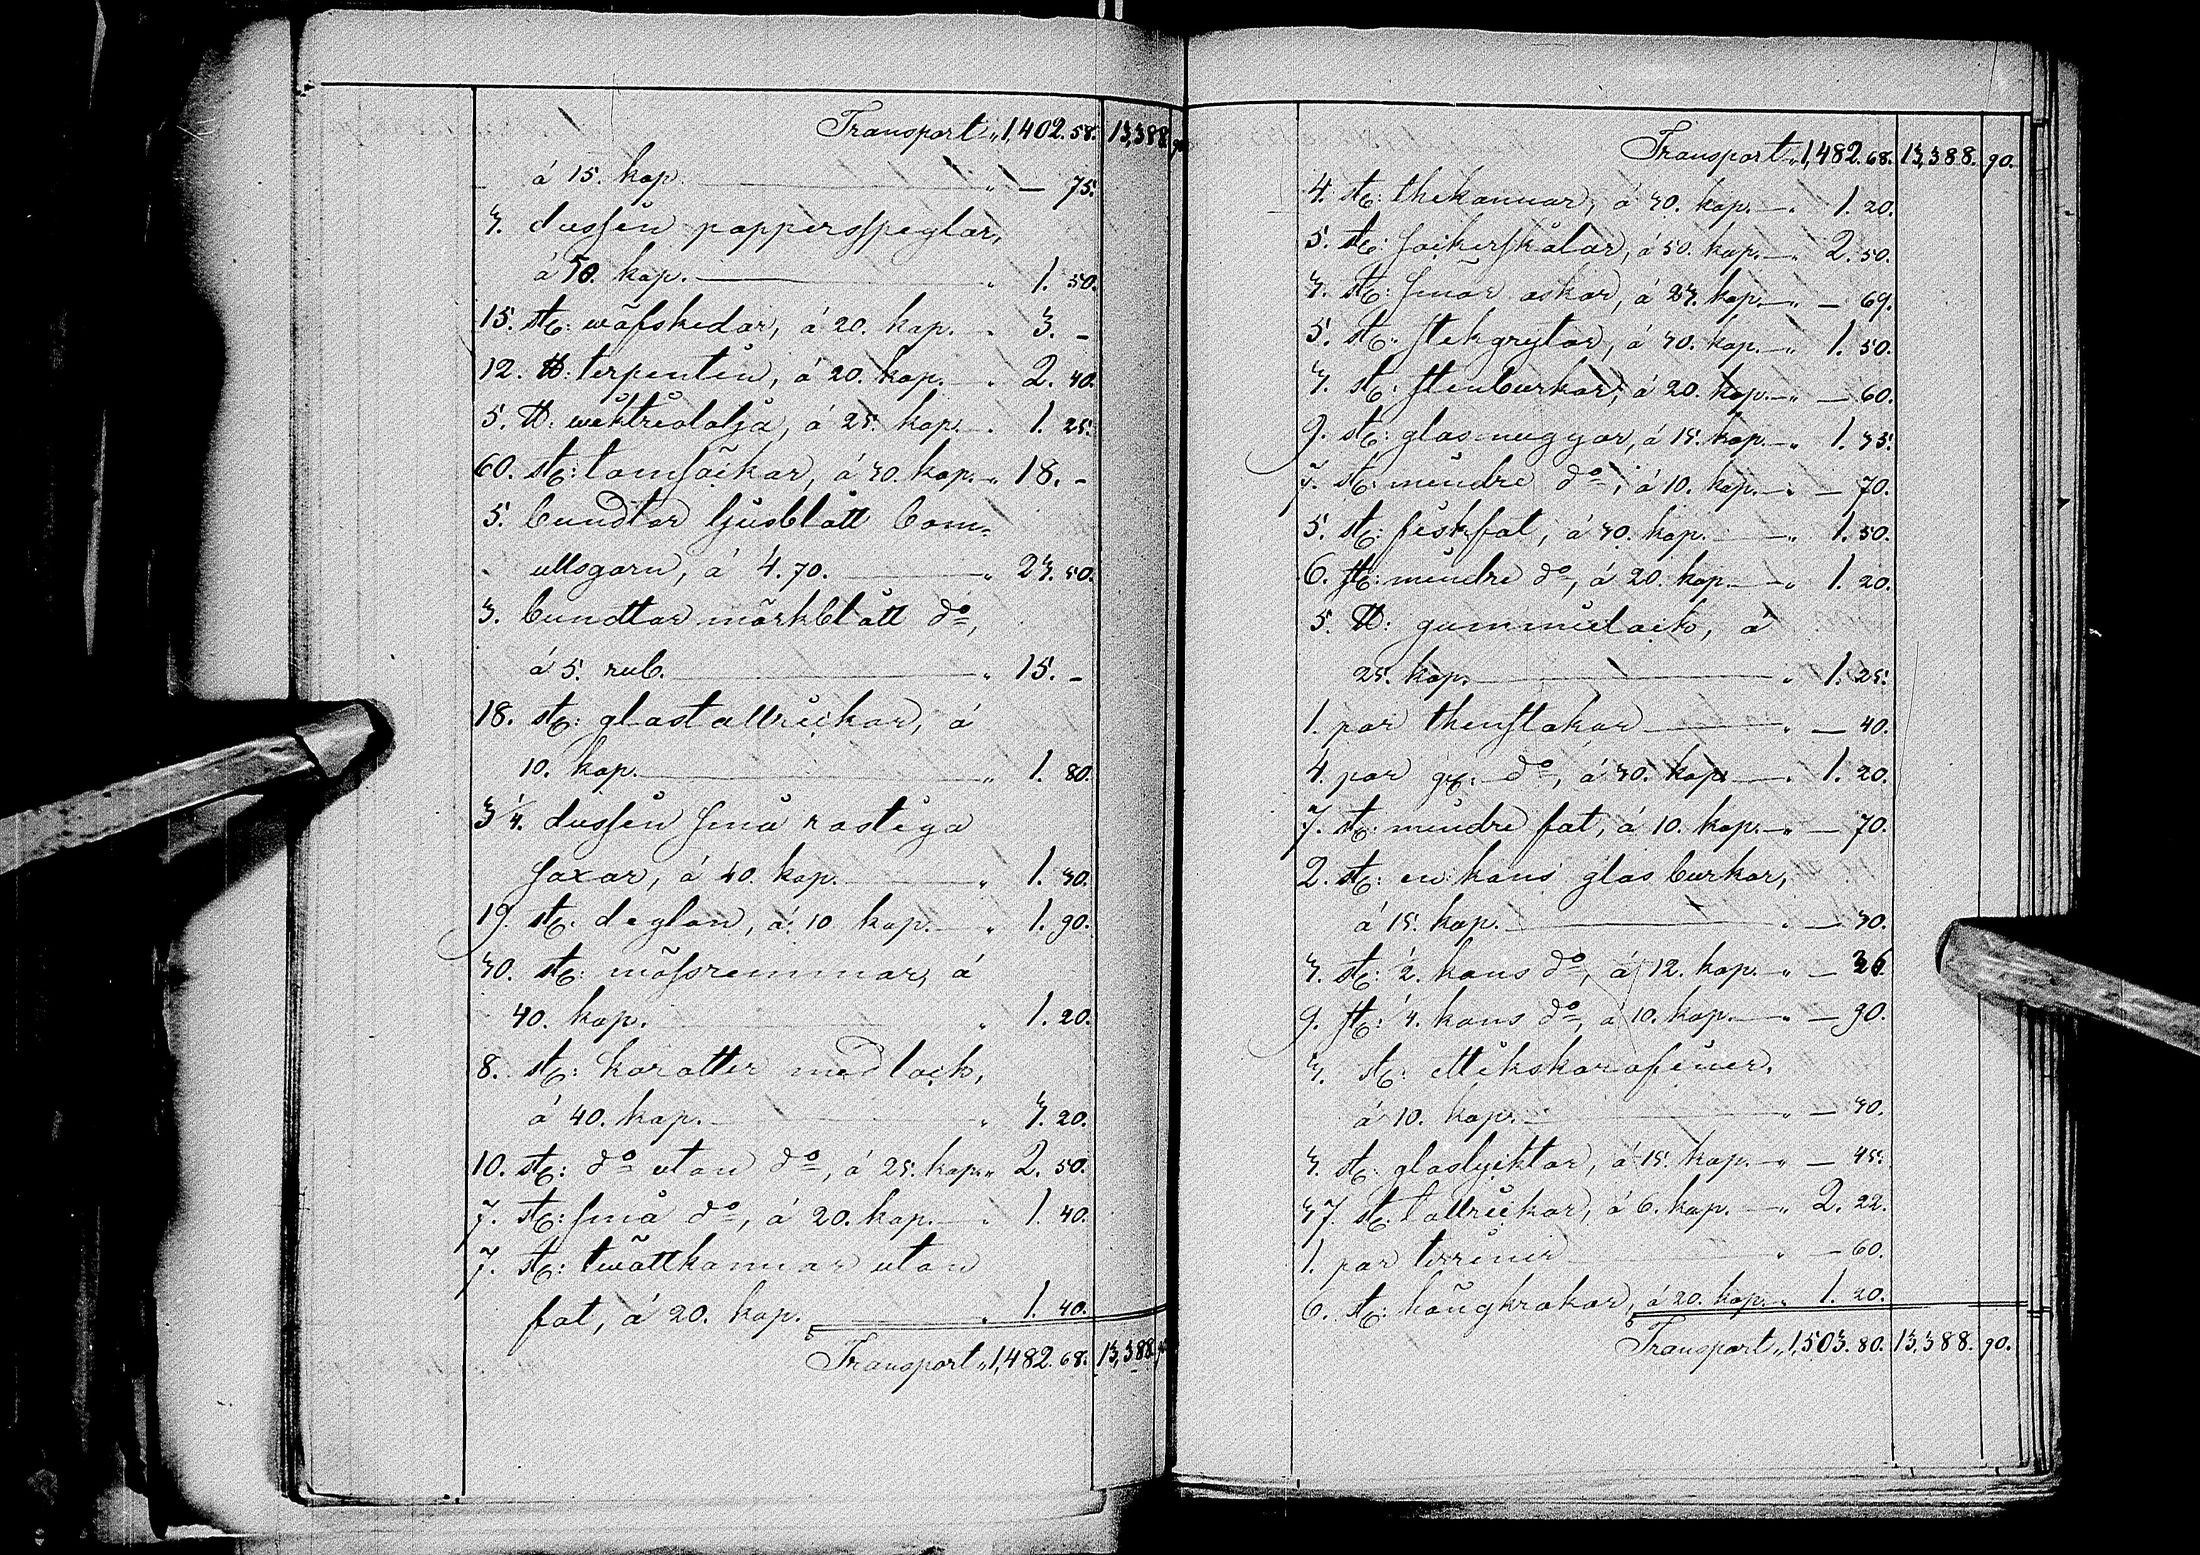 Transport „ 1,402. 58. 13,388. 90.
á 15. kop. „ — 75.
3. dussin pappersspeglar,
á 50. kop. „ 1. 50.
15. st: wäfskedar, á 20. kop. „ 3. –
12. ℔: terpentin, á 20. kop. „ 2. 40.
5. ℔: wiktriololja, á 25. kop. „ 1. 25.
60. st: tomsäckar, á 30. kop. „ 18. –
5. bundtar ljusblått bom-
ullsgarn, á 4. 70. „ 23. 50.
3. bundtar mörkblått do,
á 5. rub. „ 15. –
18. st: glastallrickar, á
10. kop. „ 1. 80.
3 1/4. dussin små rostiga
saxar, á 40. kop. „ 1. 30.
19. st: deglar, á 10 kop. „ 1. 90.
30. st: mössremmar, á
40. kop. „ 1. 20.
8. st: karotter med lock,
á 40. kop. „ 3. 20.
10. st: do utan do, á 25. kop. „ 2. 50.
7. st: små do, á 20. kop. „ 1. 40.
7. st: twättkannor utan
fat, á 20. kop. „ 1. 40.
Transport „ 1,482. 68. 13,388. 90.
Transport „ 1,482. 68. 13,388. 90.
4. st: thekannor, á 30. kop. „ 1. 20.
5. st: sockerskålar, á 50. kop. „ 2. 50.
3. st: smör askar, á 23. kop. „ — 69.
5. st: stekgrytor, á 30. kop. „ 1. 50.
3. st: stenburkar, á 20. kop. „ — 60.
9. st: glasmuggar, á 15. kop. „ 1. 35.
7. st: mindre do, á 10. kop. „ — 70.
5. st: fiskfat, á 30. kop. „ 1. 50.
6. st: mindre do, á 20. kop. „ 1. 20.
5. ℔: gummilack, á
25. kop. „ 1. 25.
1. par thenstakar „ — 40.
4. par gr: do, á 30. kop. „ 1. 20.
7. st: mindre fat, á 10. kop. „ — 70.
2. st: en kans glasburkar,
á 15. kop. „ — 30.
3. st: 1/2. kans do, á 12. kop. „ — 36
9. st: 1/4. kans do, á 10. kop. „ — 90.
3. st: ettikskarafiner,
á 10. kop. „ — 30.
3. st: glaslycktor, á 15. kop. „ — 45.
37. st: tallrickar, á 6. kop. „ 2. 22.
1. par terrinir „ — 60.
6. st: hängkrokar, á 20. kop. „ 1. 20.
Transport „ 1,503. 80. 13,388. 90.